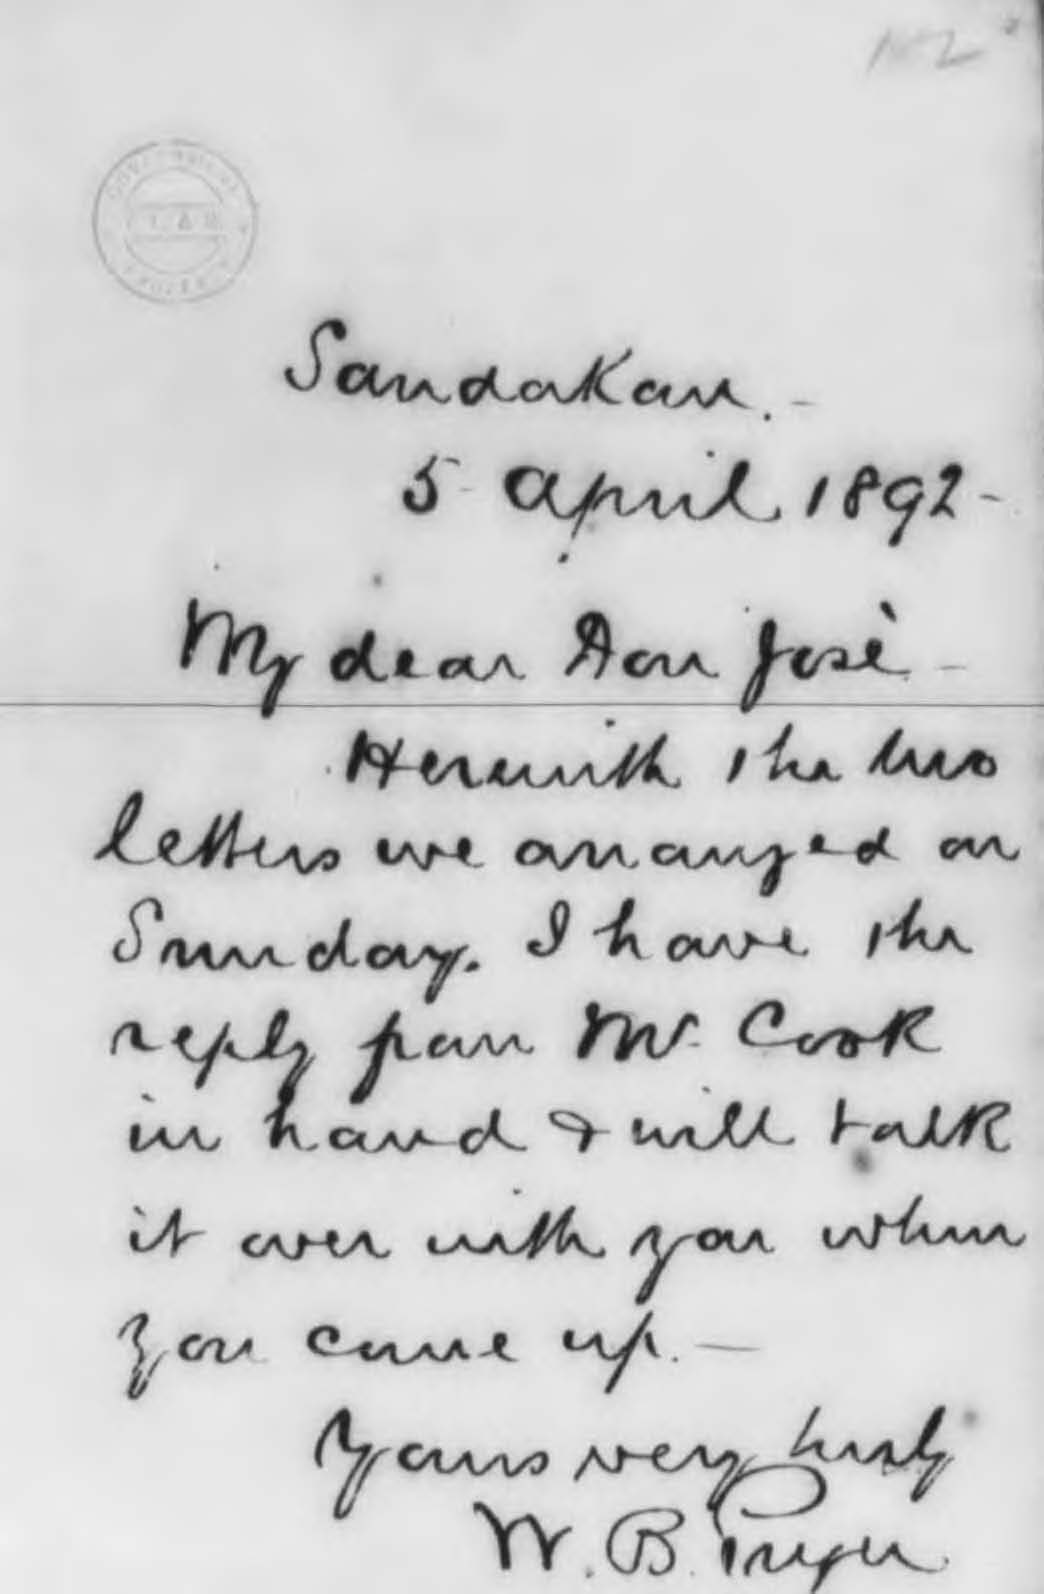 Sandakan. -
5 April 1892 -
My dear Don Josè -
Herewith the two
letters we arranged on
Sunday. I have the
reply from Mr. Cook
in hand & will talk
it over with you when
you come up. -
Yours very truly
W. B. Pryer